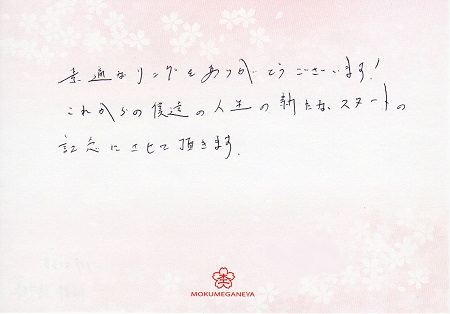 素適なリングをありがとうございます!
これからの僕達の人生の新たなスタートの
記念にさせて頂きます。
MOKUMEGANEYA